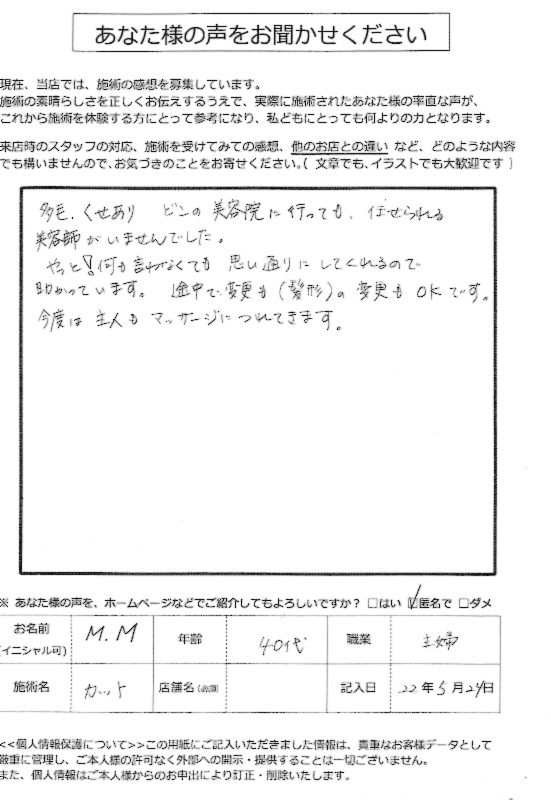 あなた様の声をお聞かせください
現在、当店では、施術の感想を募集しています。
施術の素晴らしさを正しくお伝えするうえで、実際に施術されたあなた様の率直な声が、
これから施術を体験する方にとって参考になり、私どもにとっても何よりの力となります。
来店時のスタッフの対応、施術を受けてみての感想、他のお店との違い など、どのような内容
でも構いませんので、お気づきのことをお寄せください。( 文章でも、イラストでも大歓迎です )
多毛、くせあり どこの美容院に行っても、任せられる
美容師がいませんでした。
やっと!何も言わなくても思い通りにしてくれるので
助かっています。 途中で変更も(髪形)の変更もOKです。
今度は主人もマッサージにつれてきます。
※ あなた様の声を、ホームページなどでご紹介してもよろしいですか? □はい ☑匿名で □ダメ
お名前 M.M 年齢 40代 職業 主婦
(イニシャル可)
施術名 カット 店舗名(必須) 記入日 22年5月24日
<<個人情報保護について>>この用紙にご記入いただきました情報は、貴重なお客様データとして
厳重に管理し、ご本人様の許可なく外部への開示・提供することは一切ございません。
また、個人情報はご本人様からのお申出により訂正・削除いたします。